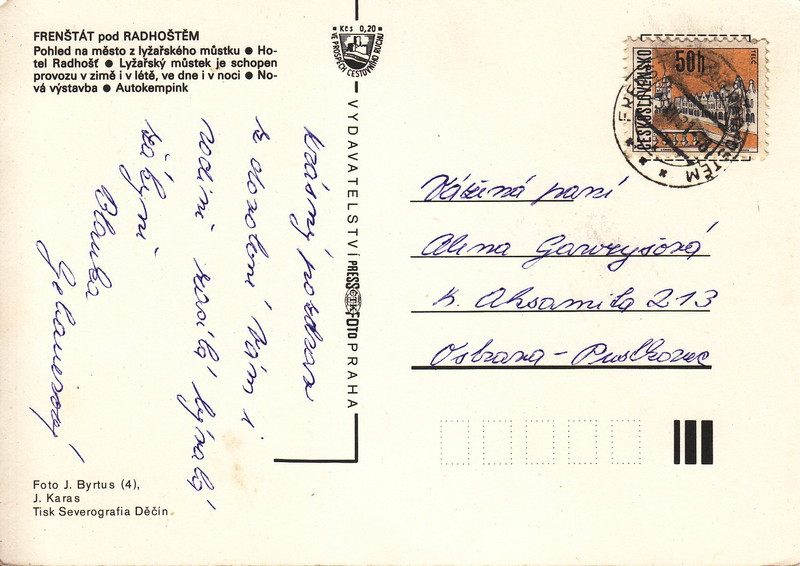 FRENŠTÁT pod RADHOŠTĚM
Pohled na město z lyžařského můstku ● Ho-
tel Radhošť ● Lyžařský můstek je schopen
provozu v zimě i v létě, ve dne i v noci ● No-
vá výstavba ● Autokempink
Kčs 0,20
VE PROSPĚCH CESTOVNÍHO RUCHU
VYDAVATELSTVÍ PRESSFOTO PRAHA
ČTK
ČESKOSLOVENSKO
50h
TELČ
Krásný pozdrav
z dovolené Vám i
rodině
Blanka
Vážená paní
Alena
K. Aksamita 213
Ostrava - Pustkovec
Foto J. Byrtus (4),
J. Karas
Tisk Severografia Děčín